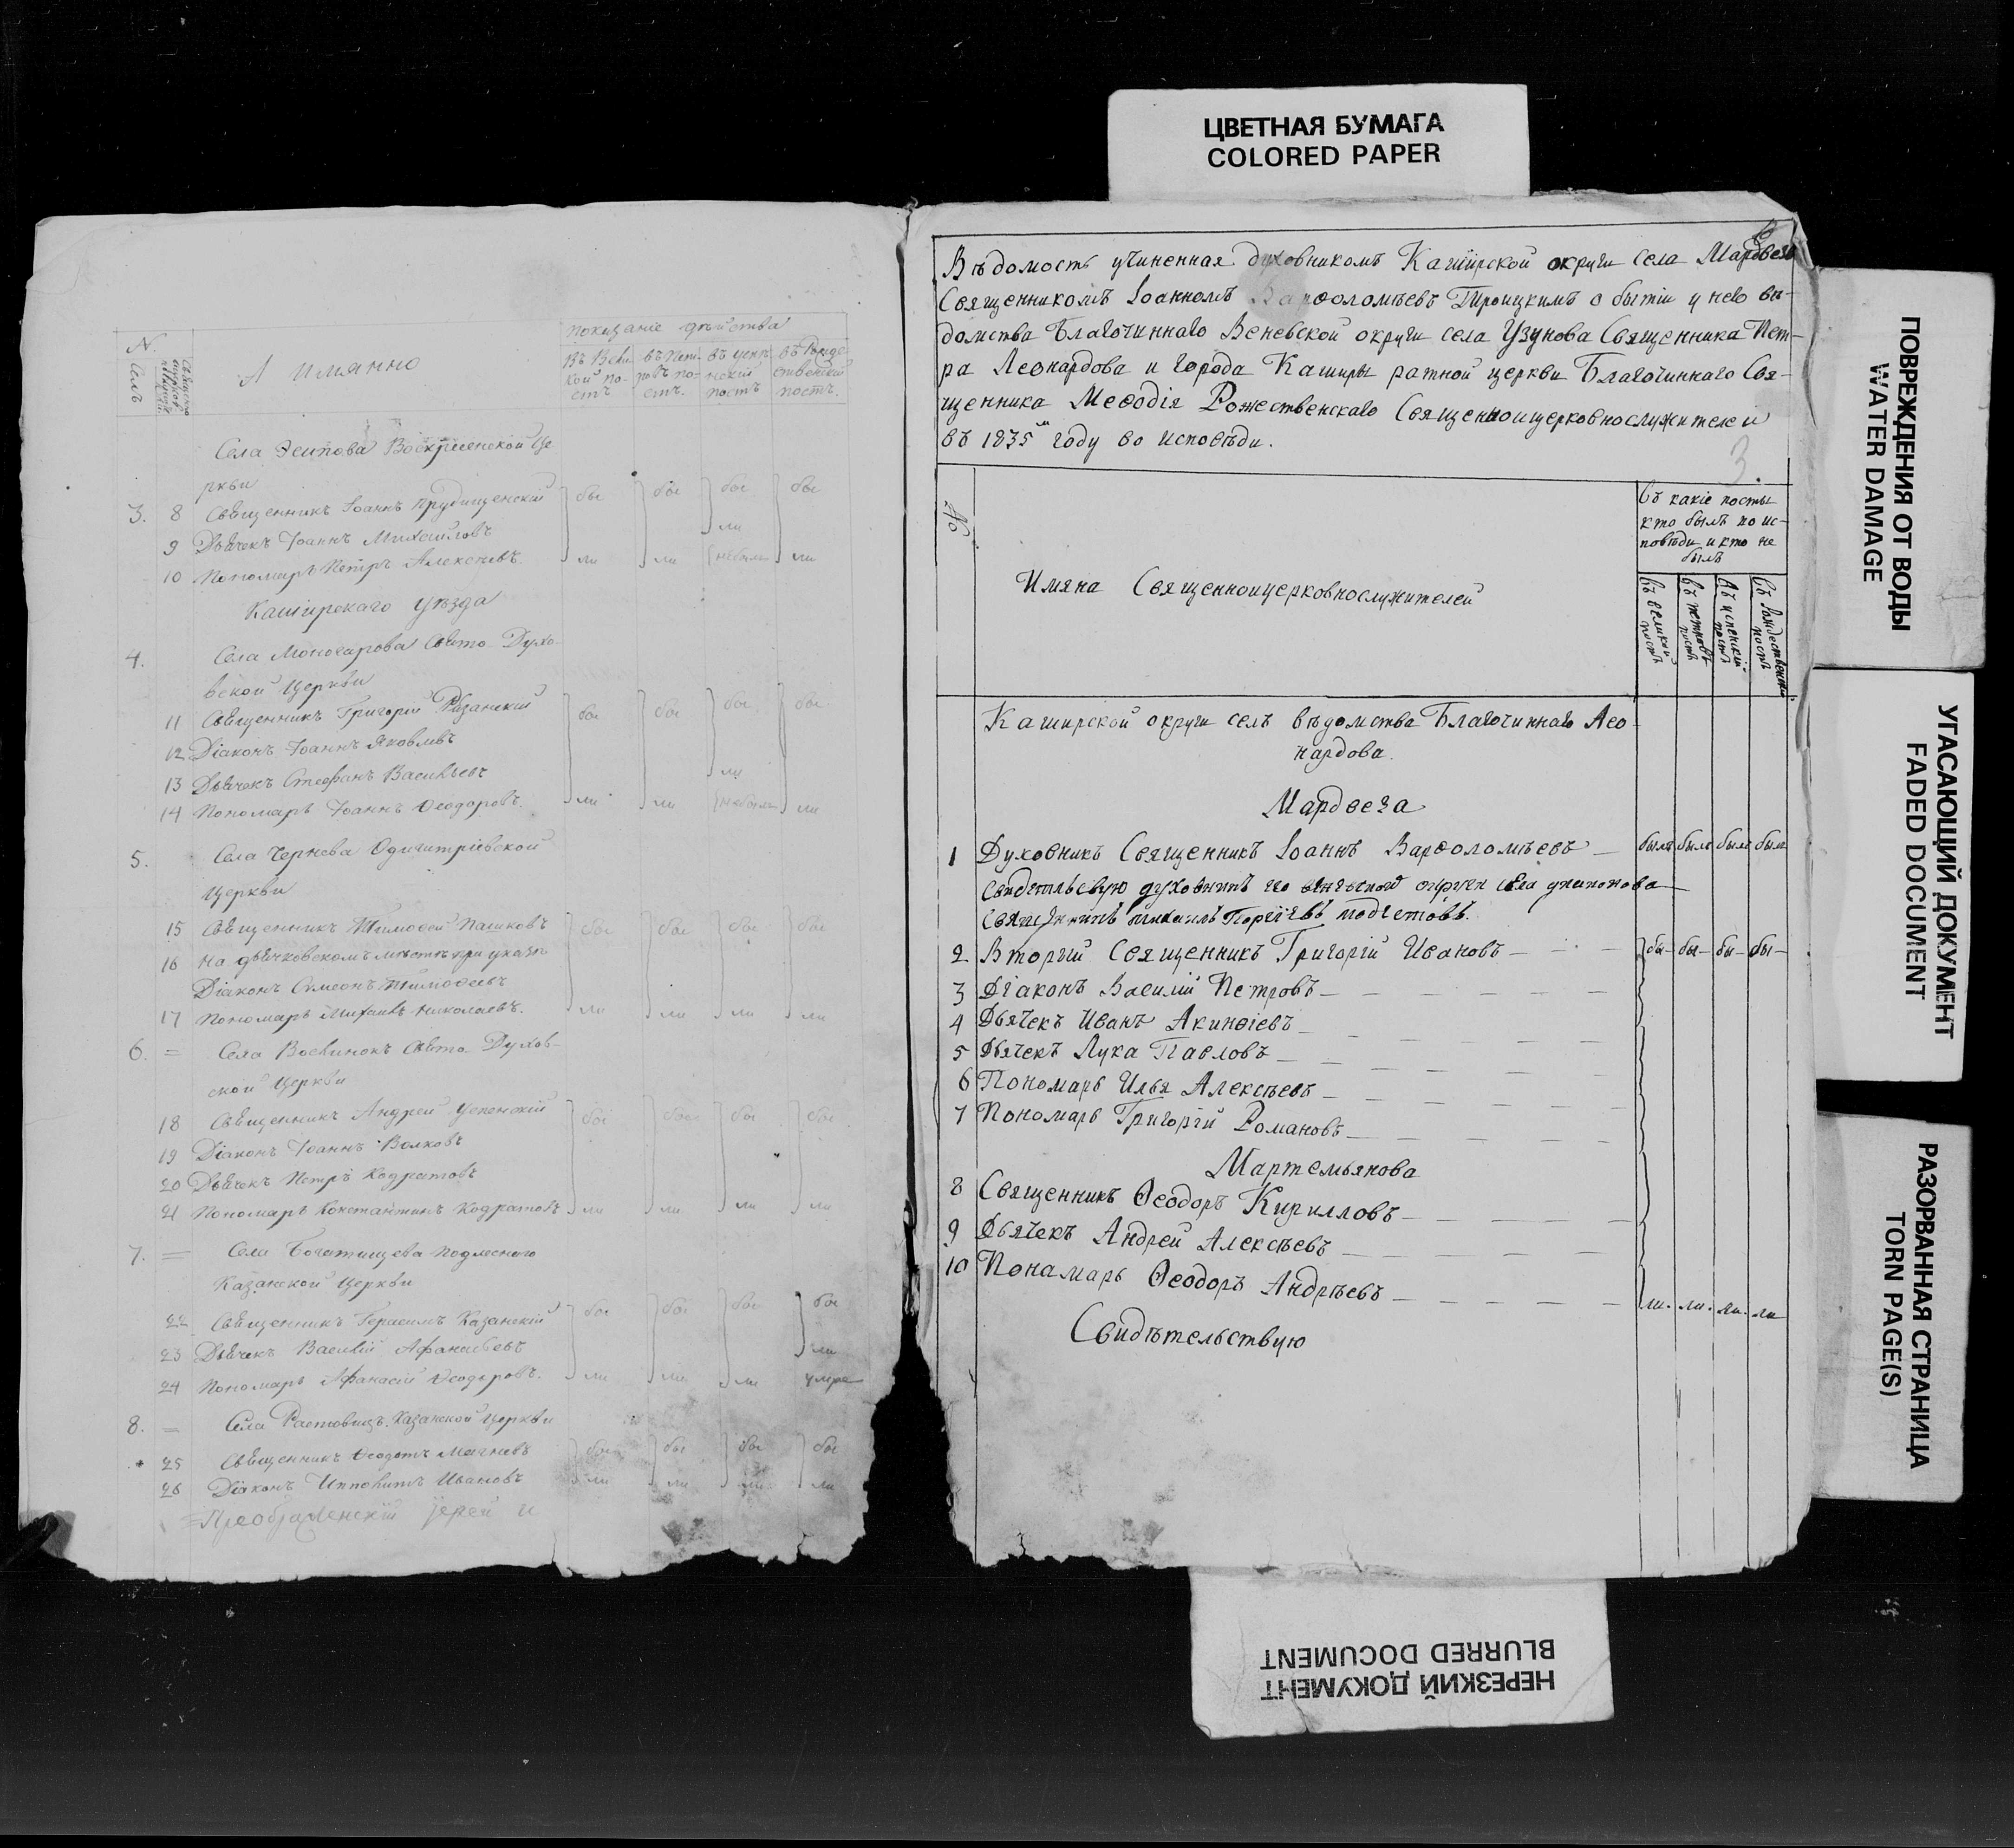 ЦВЕТНАЯ БУМАГА
COLORED PAPER
N.
Селъ
А имянно
показаніе дѣйства
въ Вели-
кой по-
стъ
въ Пет-
ровъ по-
стъ.
въ успе-
нскій
постъ
въ Рожде-
ственскій
постъ.
Села Эсипова Воскресенской Це
ркви
3. 8 Священникъ Іоаннъ Прудищенскій бы бы бы бы
9 Дьячекъ Іоаннъ Михайловъ ли
10 Пономарь Петръ Алексѣевъ. ли ли не былъ ли
Каширскаго уѣзда
4. Села Моногарова Свято Духо-
вской Церкви
11 Священникъ Григорій Рязанскій бы бы бы бы
12 Діаконъ Іоаннъ Яковлевъ
13 Дьячекъ Стефанъ Васильевъ ли
14 Пономарь Іоаннъ Ѳеодоровъ. ли ли не былъ ли
5. Села Чернева Одигитріевской
Церкви
15 Священникъ Тимоѳей Пашковъ бы бы бы бы
16 На дьячковскомъ мѣстѣ при указѣ
Діаконъ Симеонъ Тимоѳеевъ
17 Пономарь Михаилъ Николаевъ. ли ли ли ли
6. = Села Воскинокъ Свято Духов-
ской Церкви
18 Священникъ Андрей Успенскій бы бы бы бы
19 Діаконъ Іоаннъ Волковъ
20 Дьячекъ Петръ Кодратовъ
21 Пономарь Константинъ Кодратовъ ли ли ли ли
7. = Села Богатищева Подлеснаго
Казанской Церкви
22 Священникъ Герасимъ Казанскій бы бы бы бы
23 Дьячекъ Василій Афанасьевъ ли
24 Пономарь Афанасій Ѳеодоровъ. ли ли ли умре
8. = Села Растовецъ Казанской Церкви
25 Священникъ Ѳеодотъ бы бы бы бы
26 Діаконъ Ипполитъ Ивановъ ли ли ли ли
=Преображенскій Іерей и
6
Вѣдомость учиненная духовникомъ Каширской округи села Мардвеза
Священникомъ Іоанномъ Варѳоломѣевъ Троицкимъ о бытіи у него вѣ-
домства Благочиннаго Веневской округи села Узунова Священника Пет-
ра Леонардова и города Каширы ратной церкви Благочиннаго Свя-
щенника Меѳодія Рожественскаго Священноицерковнослужителей
въ 1835м году во исповѣди.
3.
№
Имяна Священноицерковнослужителей
Въ какіе посты
кто былъ по ис-
повѣди и кто не
былъ
Въ великий
постъ
Въ петровъ
постъ
Въ успенскій
постъ
Въ Рождественскій
постъ
Каширской округи селъ вѣдомства Благочиннаго Лео-
нардова.
Мардвеза
1 Духовникъ Священникъ Іоаннъ Варѳоломѣевъ — былъ былъ былъ былъ
Свидетельсвую духовникъ его округи села
Священникъ Михаилъ
2 Вторый Священникъ Григорій Ивановъ — бы- бы- бы- бы-
3 Діаконъ Василій Петровъ —
4 Дьячекъ Иванъ Акинѳіевъ —
5 Дьячекъ Лука Павловъ —
6 Пономарь Илья Алексѣевъ —
7 Пономарь Григорій Романовъ —
Мартемьянова
8 Священникъ Ѳеодоръ Кирилловъ —
9 Дьячекъ Андрей Алексѣевъ —
10 Понамарь Ѳеодоръ Андрѣевъ — ли. ли. ли. ли
Свидѣтельствую
ПОВРЕЖДЕНИЯ ОТ ВОДЫ
WATER DAMAGE
УГАСАЮЩИЙ ДОКУМЕНТ
FADED DOCUMENT
РАЗОРВАННАЯ СТРАНИЦА
TORN PAGE(S)
НЕРЕЗКИЙ ДОКУМЕНТ
BLURRED DOCUMENT